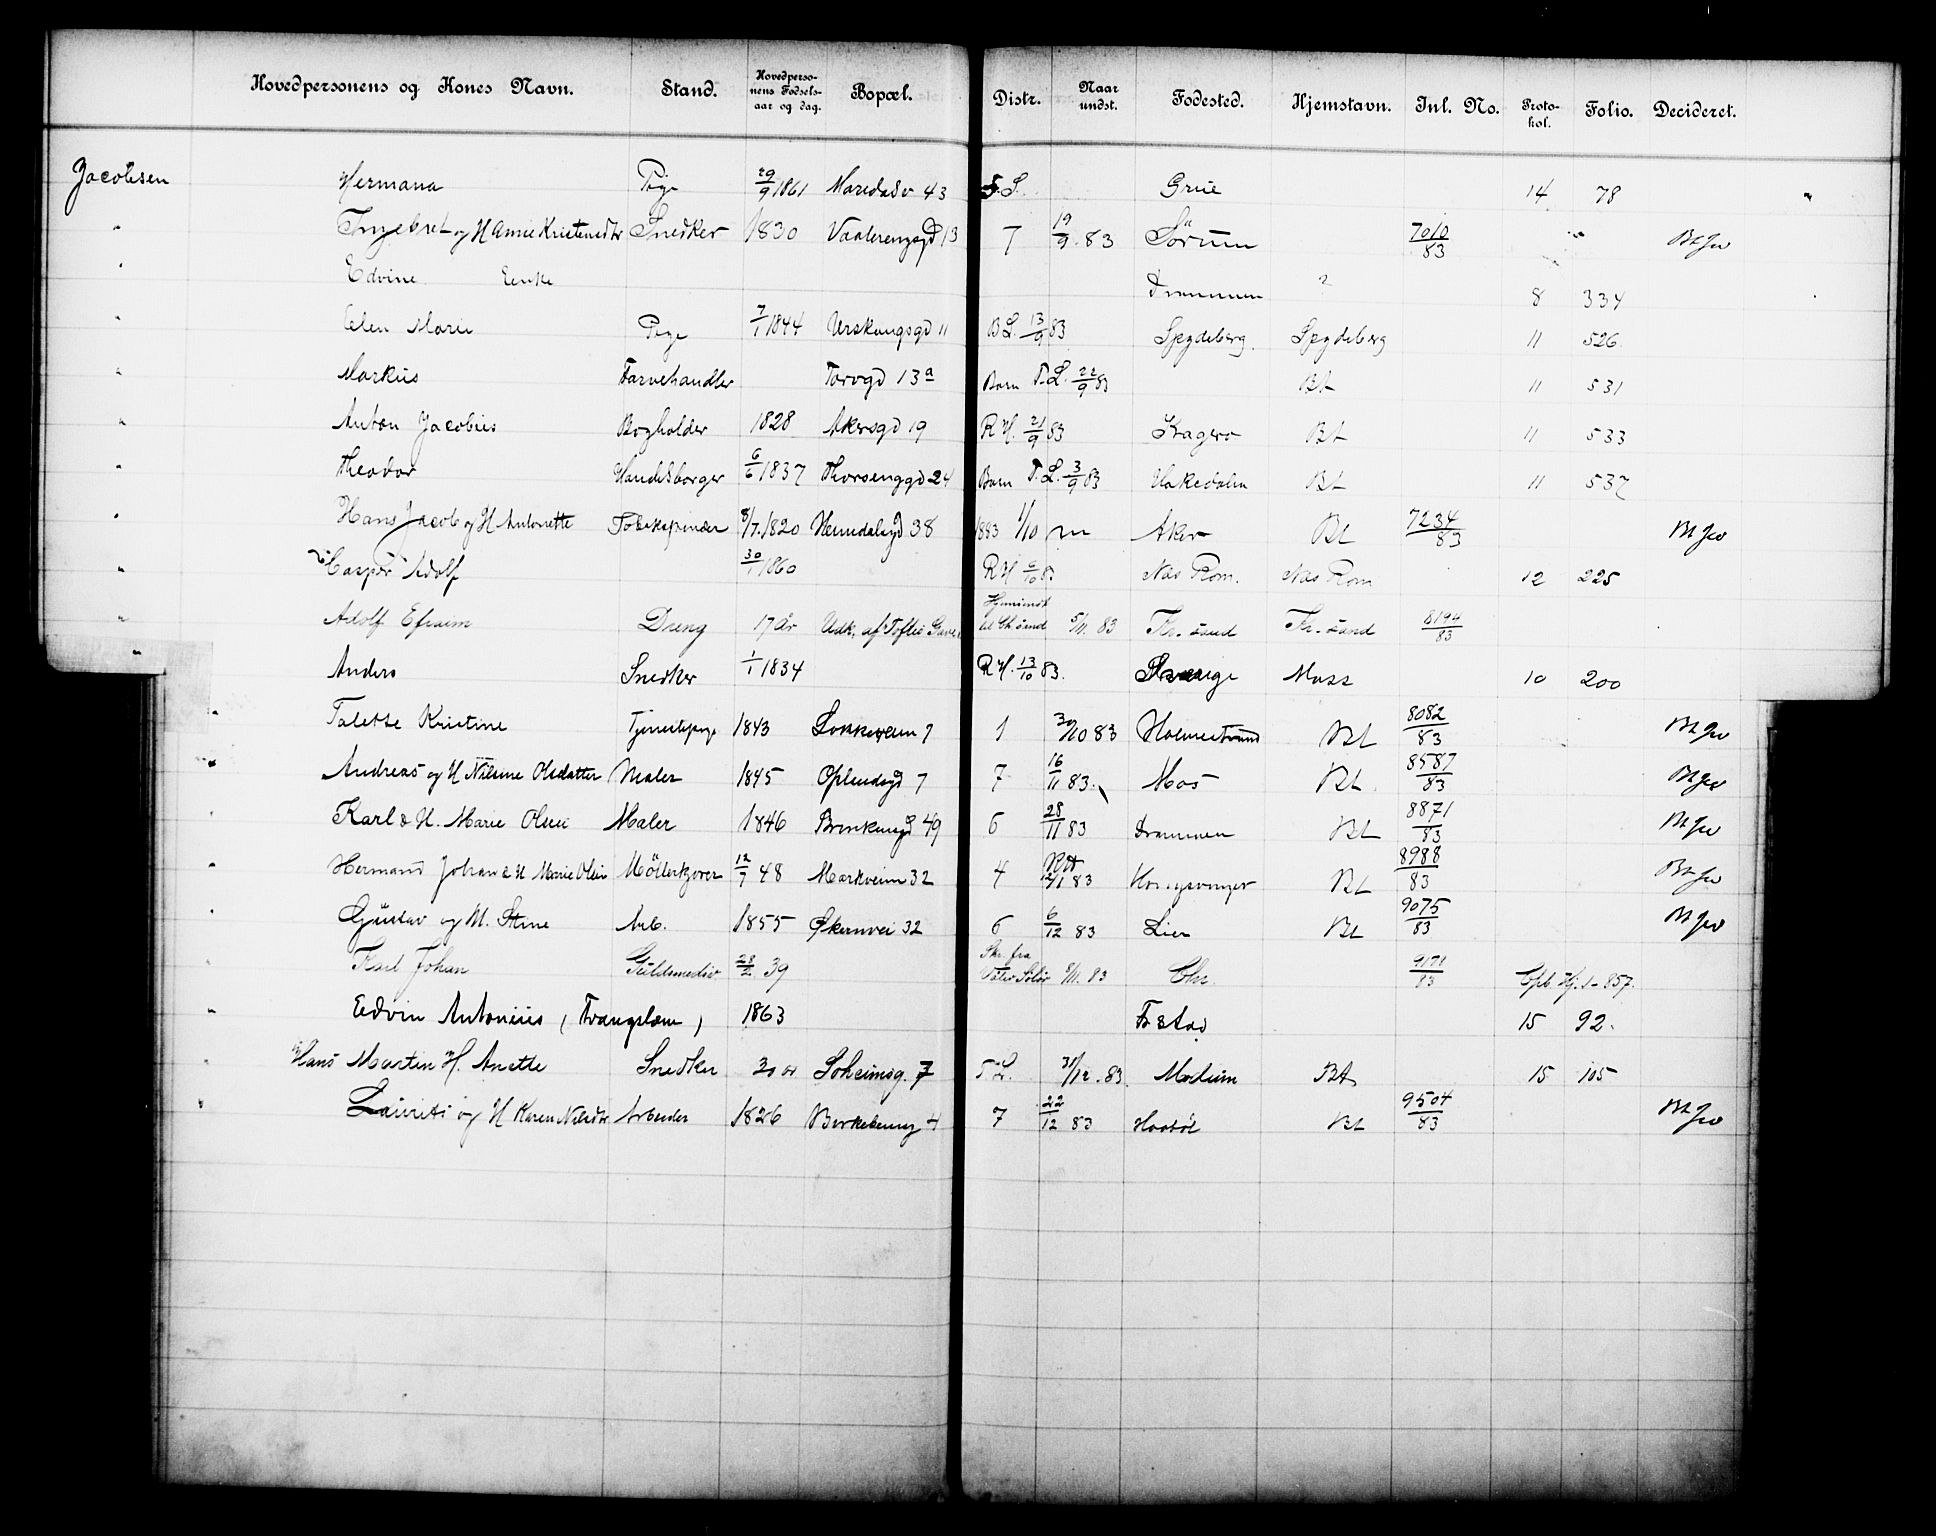 Hovedpersonens og Kones Navn. Stand. Hovedpersonens Fødselsaar og dag. Bopæl. Distr. Naar undst. Fødested. Hjemstavn. Inl. No. Protokol. Folio. Decideret.
Jacobsen Hermana Pige 29/9 1861 Maridalsv 43 F.L. Grue 14 78 "
" Ingebret og H Anne Kristensdtr Snedker 1830 Vaalerengsgd 13 7 19/9 83 Sörum 7010/83
" Edvine Enke Drammen ? 8 334
" Elen Marie Pige 7/1 1844 Urskougsgd 11 B.L. 13/9 83 Spydeberg Spydeberg 11 526
" Markus Farvehandler Torvgd 13a Barn T.L. 22/9 83 Bt 11 531
" Anton Jacobius Bogholder 1828 Akersgd 19 R.H. 21/9 83 Kragerø Bt 11 533
" Theodor Handelsborger 6/6 1837 Thorsenggd 24 Barn T.L. 3/9 83 Hakedalen Bt 11 537
" Hans Jacob og H Antonette 8/7 1820 38 1883 1/10 Aker Bt 7234/83
" Casper Adolf 30/1 1860 R.H. 6/10 83 Næs Rom. Næs Rom 12 225
" Adolf Efraim Dreng 17 år Udk. af Toftes Gave Hjemsendt til Chsand 5/11. 83 Kr. sand Kr. sand 8194/83
" Anders Snedker 1/1 1834 R.H. 13/10 83. Sverige Moss 10 200
" Talette Kristine Tjenestepige 1843 Lokkeveien 7 1 30/10 83 Holmestrand Bt 8082/83
" Andreas og H Nilsine Olsdatter Maler 1845 Oplandsgd 7 7 16/11 83. Mos Bt. 8587/83
Karl & H. Marie Olsen Maler 1846 49 6 28/11 83 Drammen Bt 8871/83
" Hermand Johan & H Marie Olsen Möllerkjører 12/7 48 Markveien 32 4 83 Kongsvinger Bt 8988/83
" Gustav og H. Stine Arb. 1855 Økernvei 32 6 6/12 83 Lier Bt 9075/83
" Karl Johan Guldsmedsv. 28/2 39 Skr. fra Våler Solør 8/11. 83 Chr. 9178/83
" Edvin Antonius (Tvangslem) 1863 Fr stad 15 92.
" Hans Martin H. Anette Snedker 30 år Soheimsg. 7 T.L. 31/12. 83. Modum Bt 15 105
" Laurits og H Karen Nilsdtr Arbeider 1826 Birkebeinerg 4 7 22/12 83 Haabøl Bt 9504/83